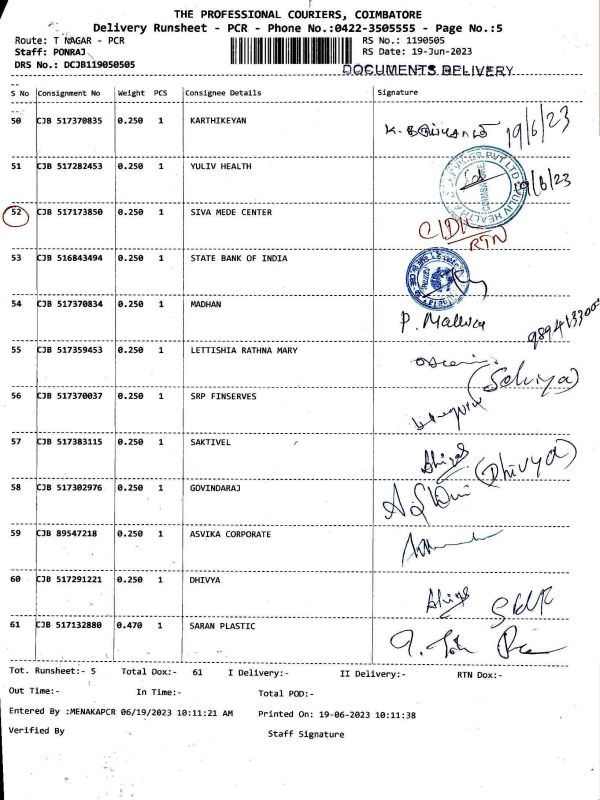 THE PROFESSIONAL COURIERS, COIMBATORE
Delivery Runsheet - PCR - Phone No.:0422-3505555 - Page No.:5
Route: T NAGAR - PCR RS No.: 1190505
Staff: PONRAJ RS Date: 19-Jun-2023
DRS No.: DCJB119050505 DOCUMENTS DELIVERY
S No Consignment No Weight PCS Consignee Details Signature
50 CJB 517370835 0.250 1 KARTHIKEYAN 19/6/23
51 CJB 517282453 0.250 1 YULIV HEALTH 19/6/23
52 CJB 517173850 0.250 1 SIVA MEDE CENTER
RTN
53 CJB 516843494 0.250 1 STATE BANK OF INDIA
54 CJB 517370834 0.250 1 MADHAN
55 CJB 517359453 0.250 1 LETTISHIA RATHNA MARY
56 CJB 517370037 0.250 1 SRP FINSERVES
57 CJB 517383115 0.250 1 SAKTIVEL (Dhivya)
58 CJB 517302976 0.250 1 GOVINDARAJ
59 CJB 89547218 0.250 1 ASVIKA CORPORATE
60 CJB 517291221 0.250 1 DHIVYA
61 CJB 517132880 0.470 1 SARAN PLASTIC
Tot. Runsheet:- 5 Total Dox:- 61 I Delivery:- II Delivery:- RTN Dox:-
Out Time:- In Time:- Total POD:-
Entered By :MENAKAPCR 06/19/2023 10:11:21 AM Printed On: 19-06-2023 10:11:38
Verified By Staff Signature